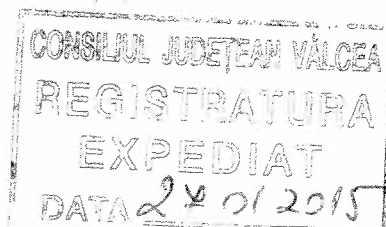 CONSILIUL JUDEȚEAN VÂLCEA
REGISTRATURA
EXPEDIAT
DATA 01 2015